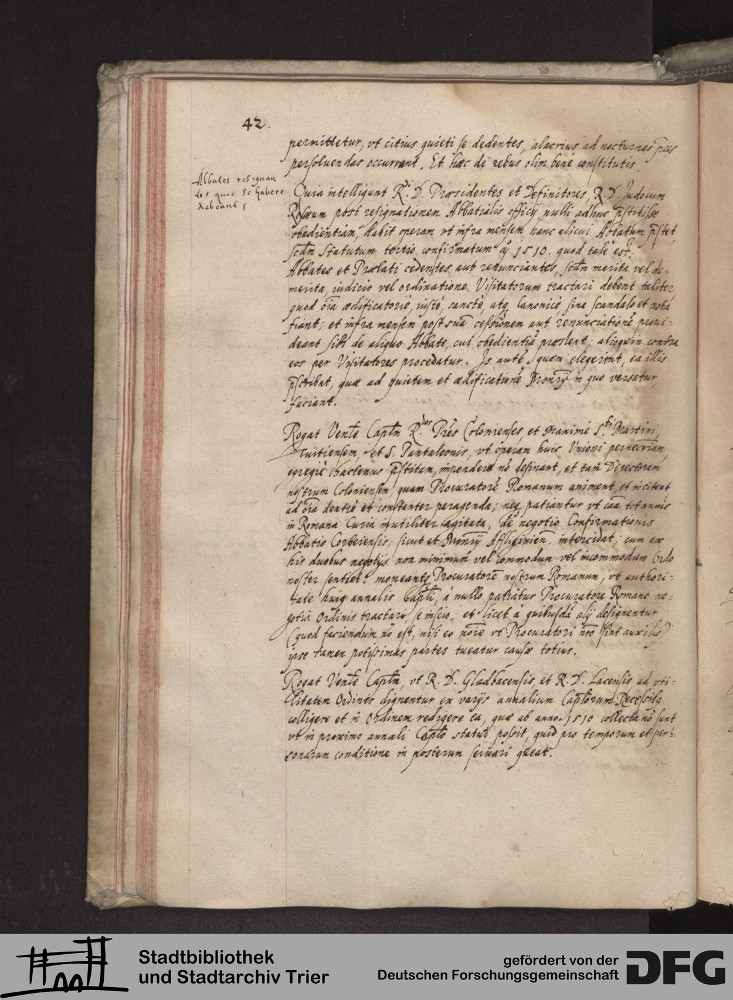 42.
permittetur, vt citius quieti se dedentes, alacrius ad nocturnas p̄ces
persoluendas occurrant. Et haec de rebus olim bene constitutis.
Abbates resignan
tes quõ se habere
debeant
Quia intelligunt R.di D. Praesidentes et Definitores, R. D. Judocum
Rosaeum post resignationem Abbatialis officij, nulli adhuc p̄stitisse
obedientiam, dabit operam vt infra mensem hanc alicui Abbatum p̄stet
scdm̃ Statutum tertio confirmatum ã 1510. quod tale est.
Abbates et Praelati cedentes aut renunciantes, scdm̃ merita vel de-
merita, iudicio vel ordinatione Visitatorum tractari debent taliter
quod oĩa aedificatorie, iuste, sancte, atq canonice sine scandalo et nota
fiant; et infra mensem post suã cessionem aut renunciationẽ proui-
deant sibi de aliquo Abbate, cui obedientiã praestent; alioquin contra
eos per Visitatores procedatur. Is autẽ quem elegerint, ea illis
p̄scribat, quae ad quietem et aedificationẽ Mon̄rij in quo versatur
faciant.
Rogat Venl̃e Captm̃ R.dos Prẽs Colonienses et maxime S.ti Martini,
Tuitiensem, et S. Pantaleonis, vt operam huic Vnioni pernecr̃iam,
egregie hactenus p̄stitam, impendere nõ desinant, et tam Directorem
nostrum Coloniensem quam Procuratorẽ Romanum animent, et incitent
ad oĩa dextre et constanter peragenda; neq patiantur vt caã tot annis
in Romana Curia inutiliter agitata, de negotio Confirmationis
Abbatis Corbeiensis, sicut et Mon̄rij Affligimien, intercidat; cum ex
his duobus negotijs non minimum vel commodum vel incommodum Ordo
noster sentiet. moneantq Procuratorẽ nostrum Romanum, vt authori-
tate huiq annalis Captli, a nullo patiatur Procuratore Romano ne-
gotia Ordinis tractari se inscio, et licet a quibusdã alij designentur
(quod faciendum nõ est, nisi eo noĩe vt Procuratori nr̃o sint auxilio)
ipse tamen potissimas partes tueatur causae totius.
Rogat Venl̃e Captm̃, vt R. D. Gladbacensis et R. D. Lacensis ad vti-
litatem Ordinis dignentur ex varijs annalium Captlorum Recessib9
colligere et in Ordinem redigere ea, quae ab anno 1510 collecta nõ sunt
vt in proximo annali Captlo statui possit, quid pro temporum et per-
sonarum conditione in posterum seruari queat.
Stadtbibliothek
und Stadtarchiv Trier
gefördert von der
Deutschen Forschungsgemeinschaft
DFG